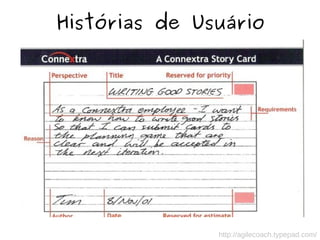 Histórias de Usuário
Connextra A Connextra Story Card
Perspective Title Reserved for priority
WRITING GOOD STORIES
As a Connextra employee - I want
to know how to write good stories
So that I can submit cards to
the planning game that are
clear and will be accepted in
the next iteration.
Requirements
Reason
Tim 8/Nov/01
Author Date Reserved for estimate
http://agilecoach.typepad.com/